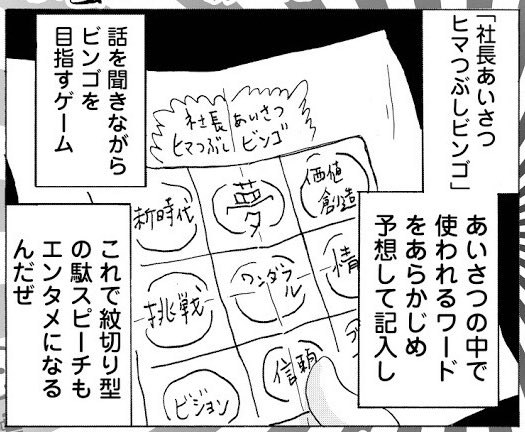 「社長あいさつ
ヒマつぶしビンゴ」
あいさつの中で
使われるワード
をあらかじめ
予想して記入し
話を聞きながら
ビンゴを
目指すゲーム
これで紋切り型
の駄スピーチも
エンタメになる
んだぜ
社長あいさつ
ヒマつぶしビンゴ
新時代
夢
価値
創造
挑戦
ワンダフル
情
ビジョン
信頼